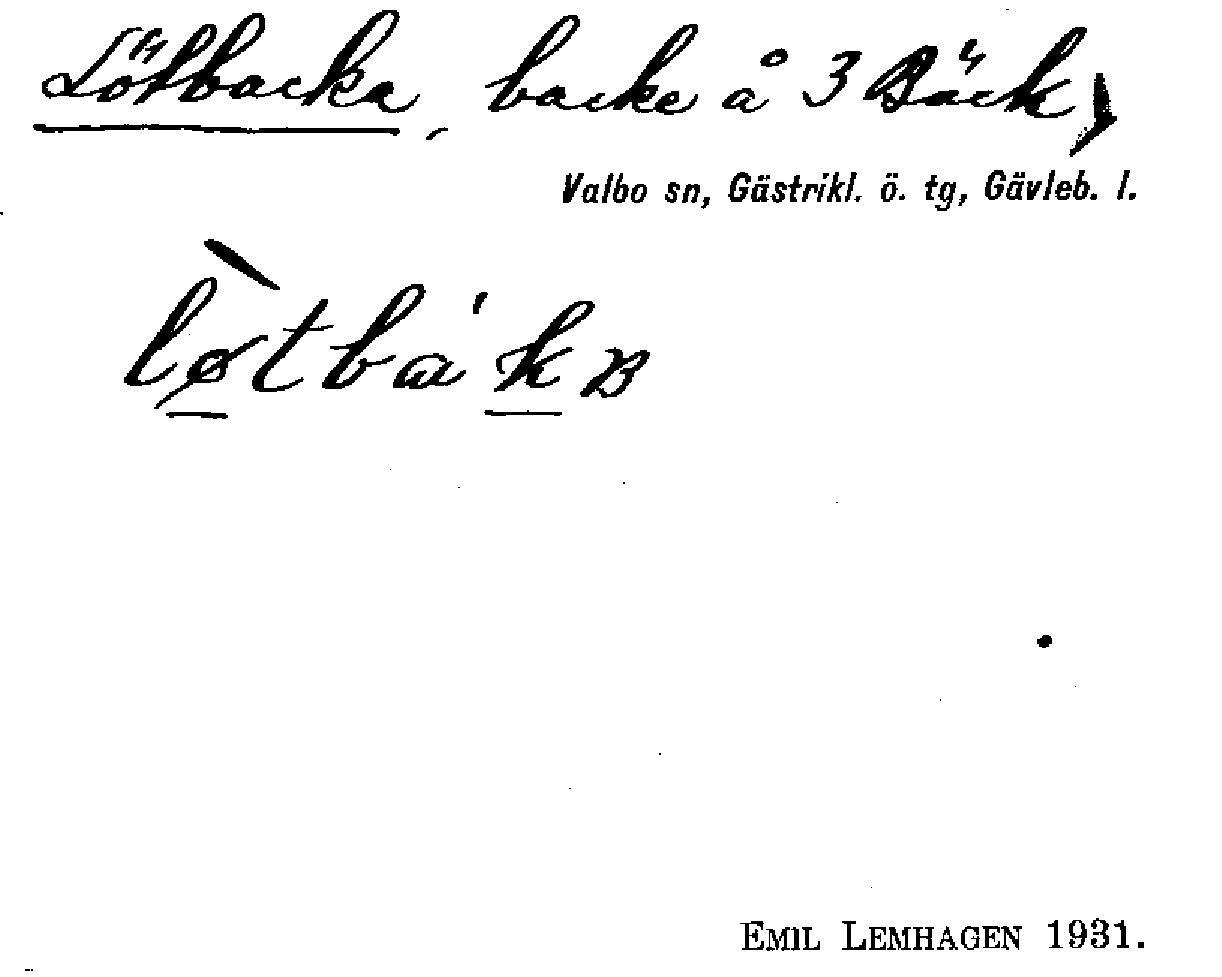 Lötbacka, backe å 3 Bäck,
Valbo sn, Gästrikl. ö. tg, Gävleb. l.
lø̀tba'kʙ
EMIL LEMHAGEN 1931.